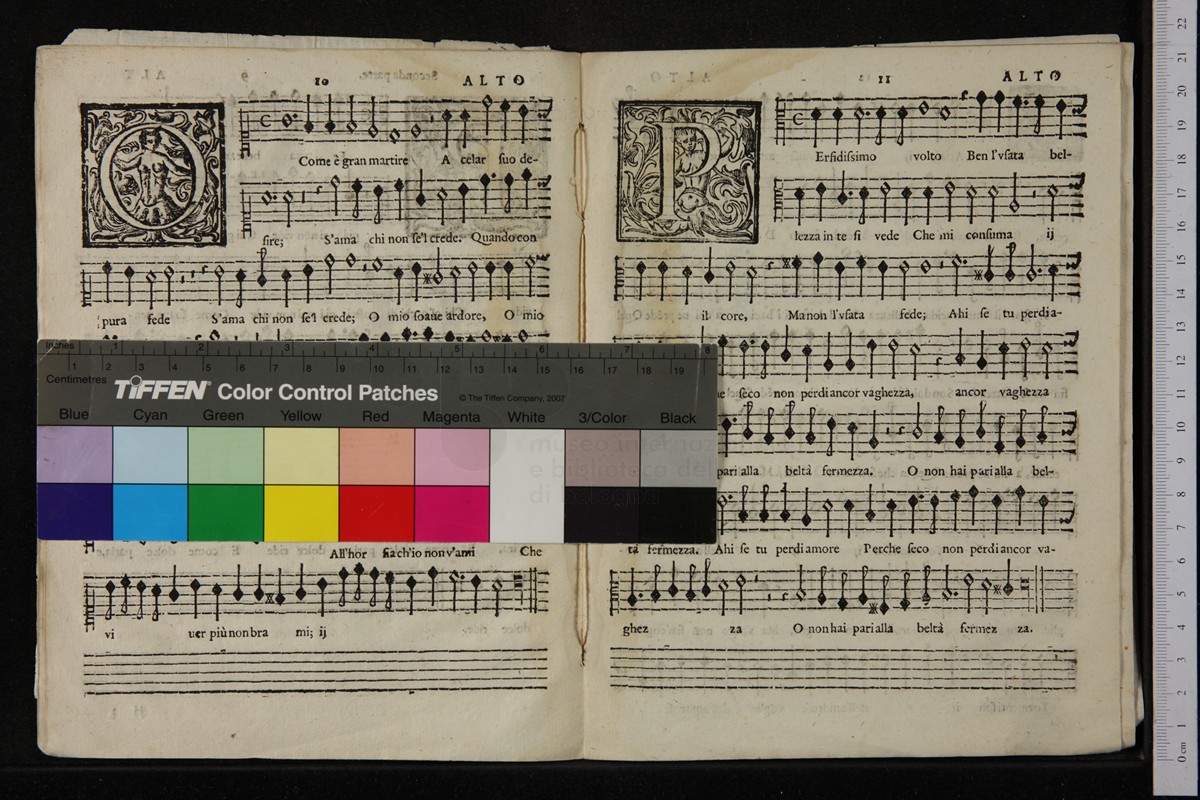 10 ALTO
O
Come è gran martire A celar ſuo de-
ſire; S'ama chi non ſe'l crede. Quando con
pura fede S'ama chi non ſe'l crede; O mio ſoaue ardore, O mio
All'hor ſia ch'io non v'ami Che
vi uer più non bra mi; ij
11 ALTO
P
Erfidiſsimo volto Ben l'vſata bel-
lezza in te ſi vede Che mi conſuma ij
il core, Ma non l'vſata fede; Ahi ſe tu perdi a-
ſeco non perdi ancor vaghezza, ancor vaghezza
pari alla beltà fermezza. O non hai pari alla bel-
tà fermezza. Ahi ſe tu perdi amore Perche ſeco non perdi ancor va-
ghez za O non hai pari alla beltà fermez za.
Inches 1 2 3 4 5 6 7 8
Centimetres 1 2 3 4 5 6 7 8 9 10 11 12 13 14 15 16 17 18 19
TIFFEN® Color Control Patches © The Tiffen Company, 2007
Blue Cyan Green Yellow Red Magenta White 3/Color Black
museo internaz
e biblioteca del
di bologna
0 cm 1 2 3 4 5 6 7 8 9 10 11 12 13 14 15 16 17 18 19 20 21 22